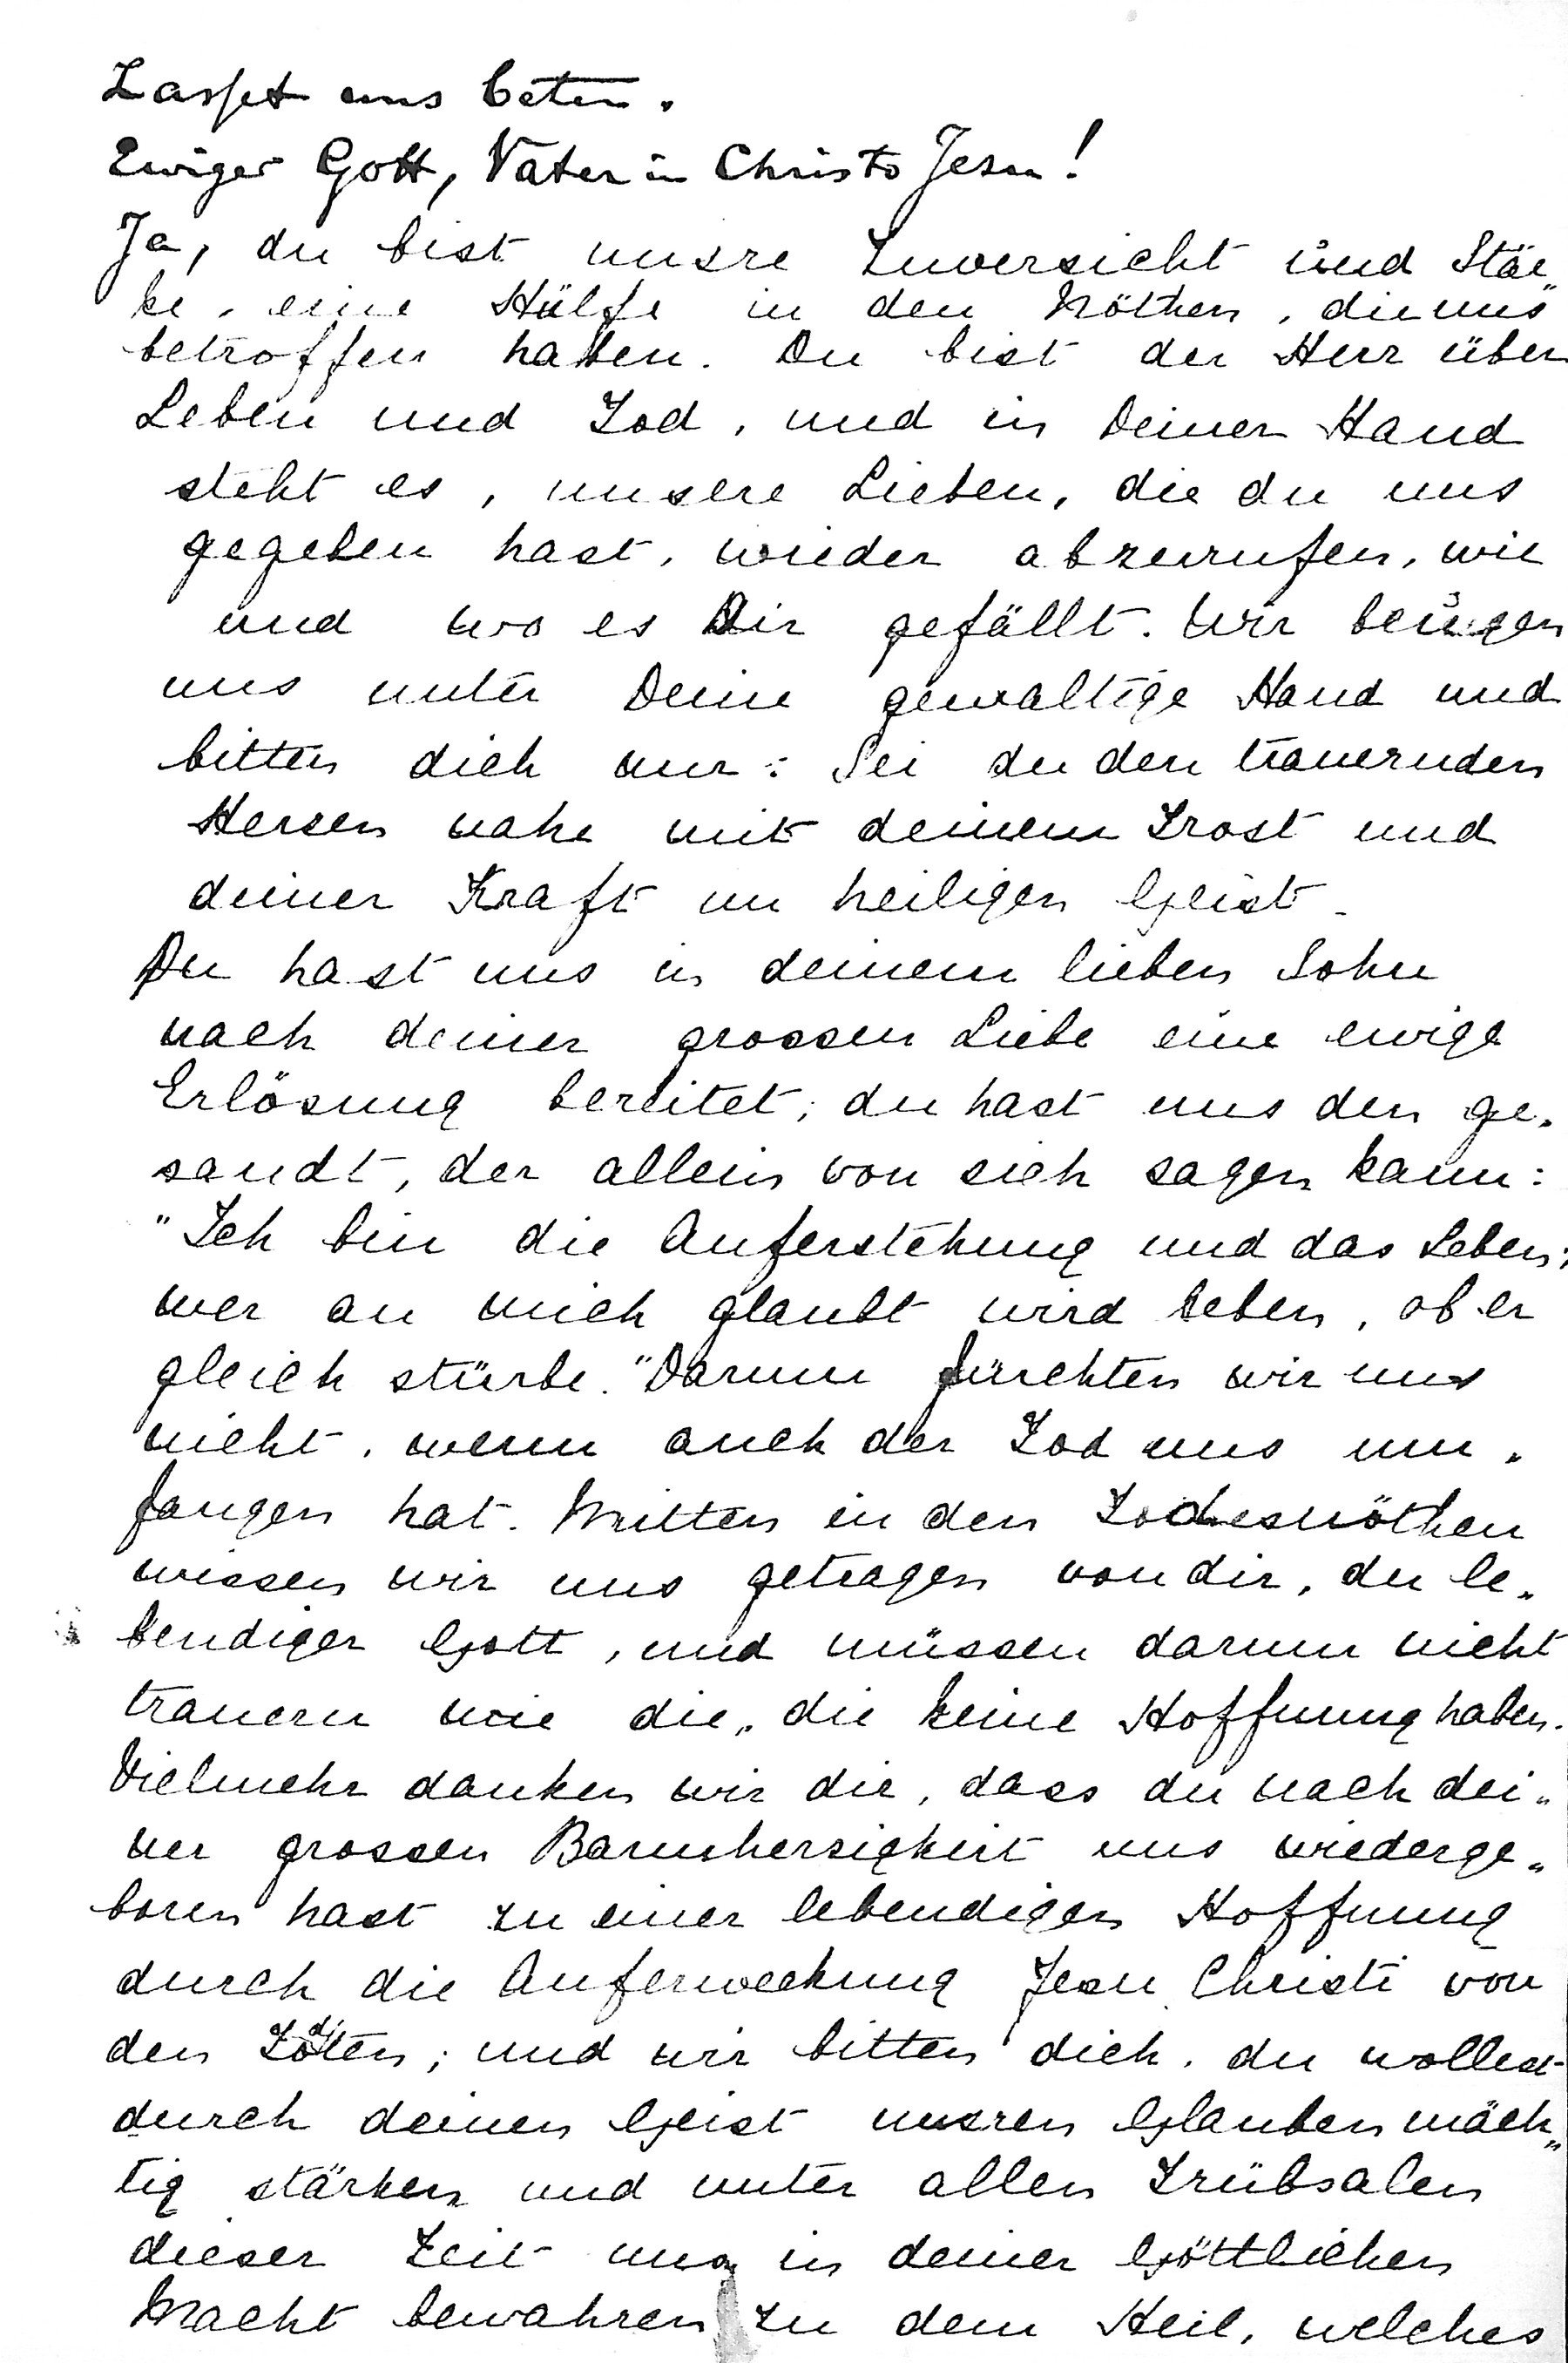 Lasset uns beten.
Ewiger Gott, Vater in Christo Jesu!
Ja, du bist unsre Zuversicht und Stär„
ke, eine Hülfe in den Nöthen, die uns
betroffen haben. Du bist der Herr über
Leben und Tod, und in Deiner Hand
steht es, unsere Lieben, die du uns
gegeben hast, wieder abzurufen, wie
und wo es Dir gefällt. Wir beugen
uns unter Deine gewaltige Hand und
bitten dich nur: Sei du den trauernden
Herzen nahe mit deinem Trost und
deiner Kraft im heiligen Geist.
Du hast uns in deinem lieben Sohn
nach deiner grossen Liebe eine ewige
Erlösung bereitet; du hast uns den ge„
sandt, der allein von sich sagen kann:
"Ich bin die Auferstehung und das Leben;
wer an mich glaubt wird leben, ob er
gleich stürbe." Darum fürchten wir uns
nicht, wenn auch der Tod uns um„
fangen hat. Mitten in den Todesnöthen
wissen wir uns getragen von dir, du le„
bendiger Gott, und müssen darum nicht
trauern wie die, die keine Hoffnung haben.
Vielmehr danken wir dir, dass du nach dei„
ner grossen Barmherzigkeit uns wiederge„
boren hast zu einer lebendigen Hoffnung
durch die Auferweckung Jesu Christi von
den Toten; und wir bitten dich, du wollest
durch deinen Geist unsren Glauben mäch„
tig stärken und unter allen Trübsalen
dieser Zeit uns in deiner Göttlichen
Macht bewahren zu dem Heil, welches